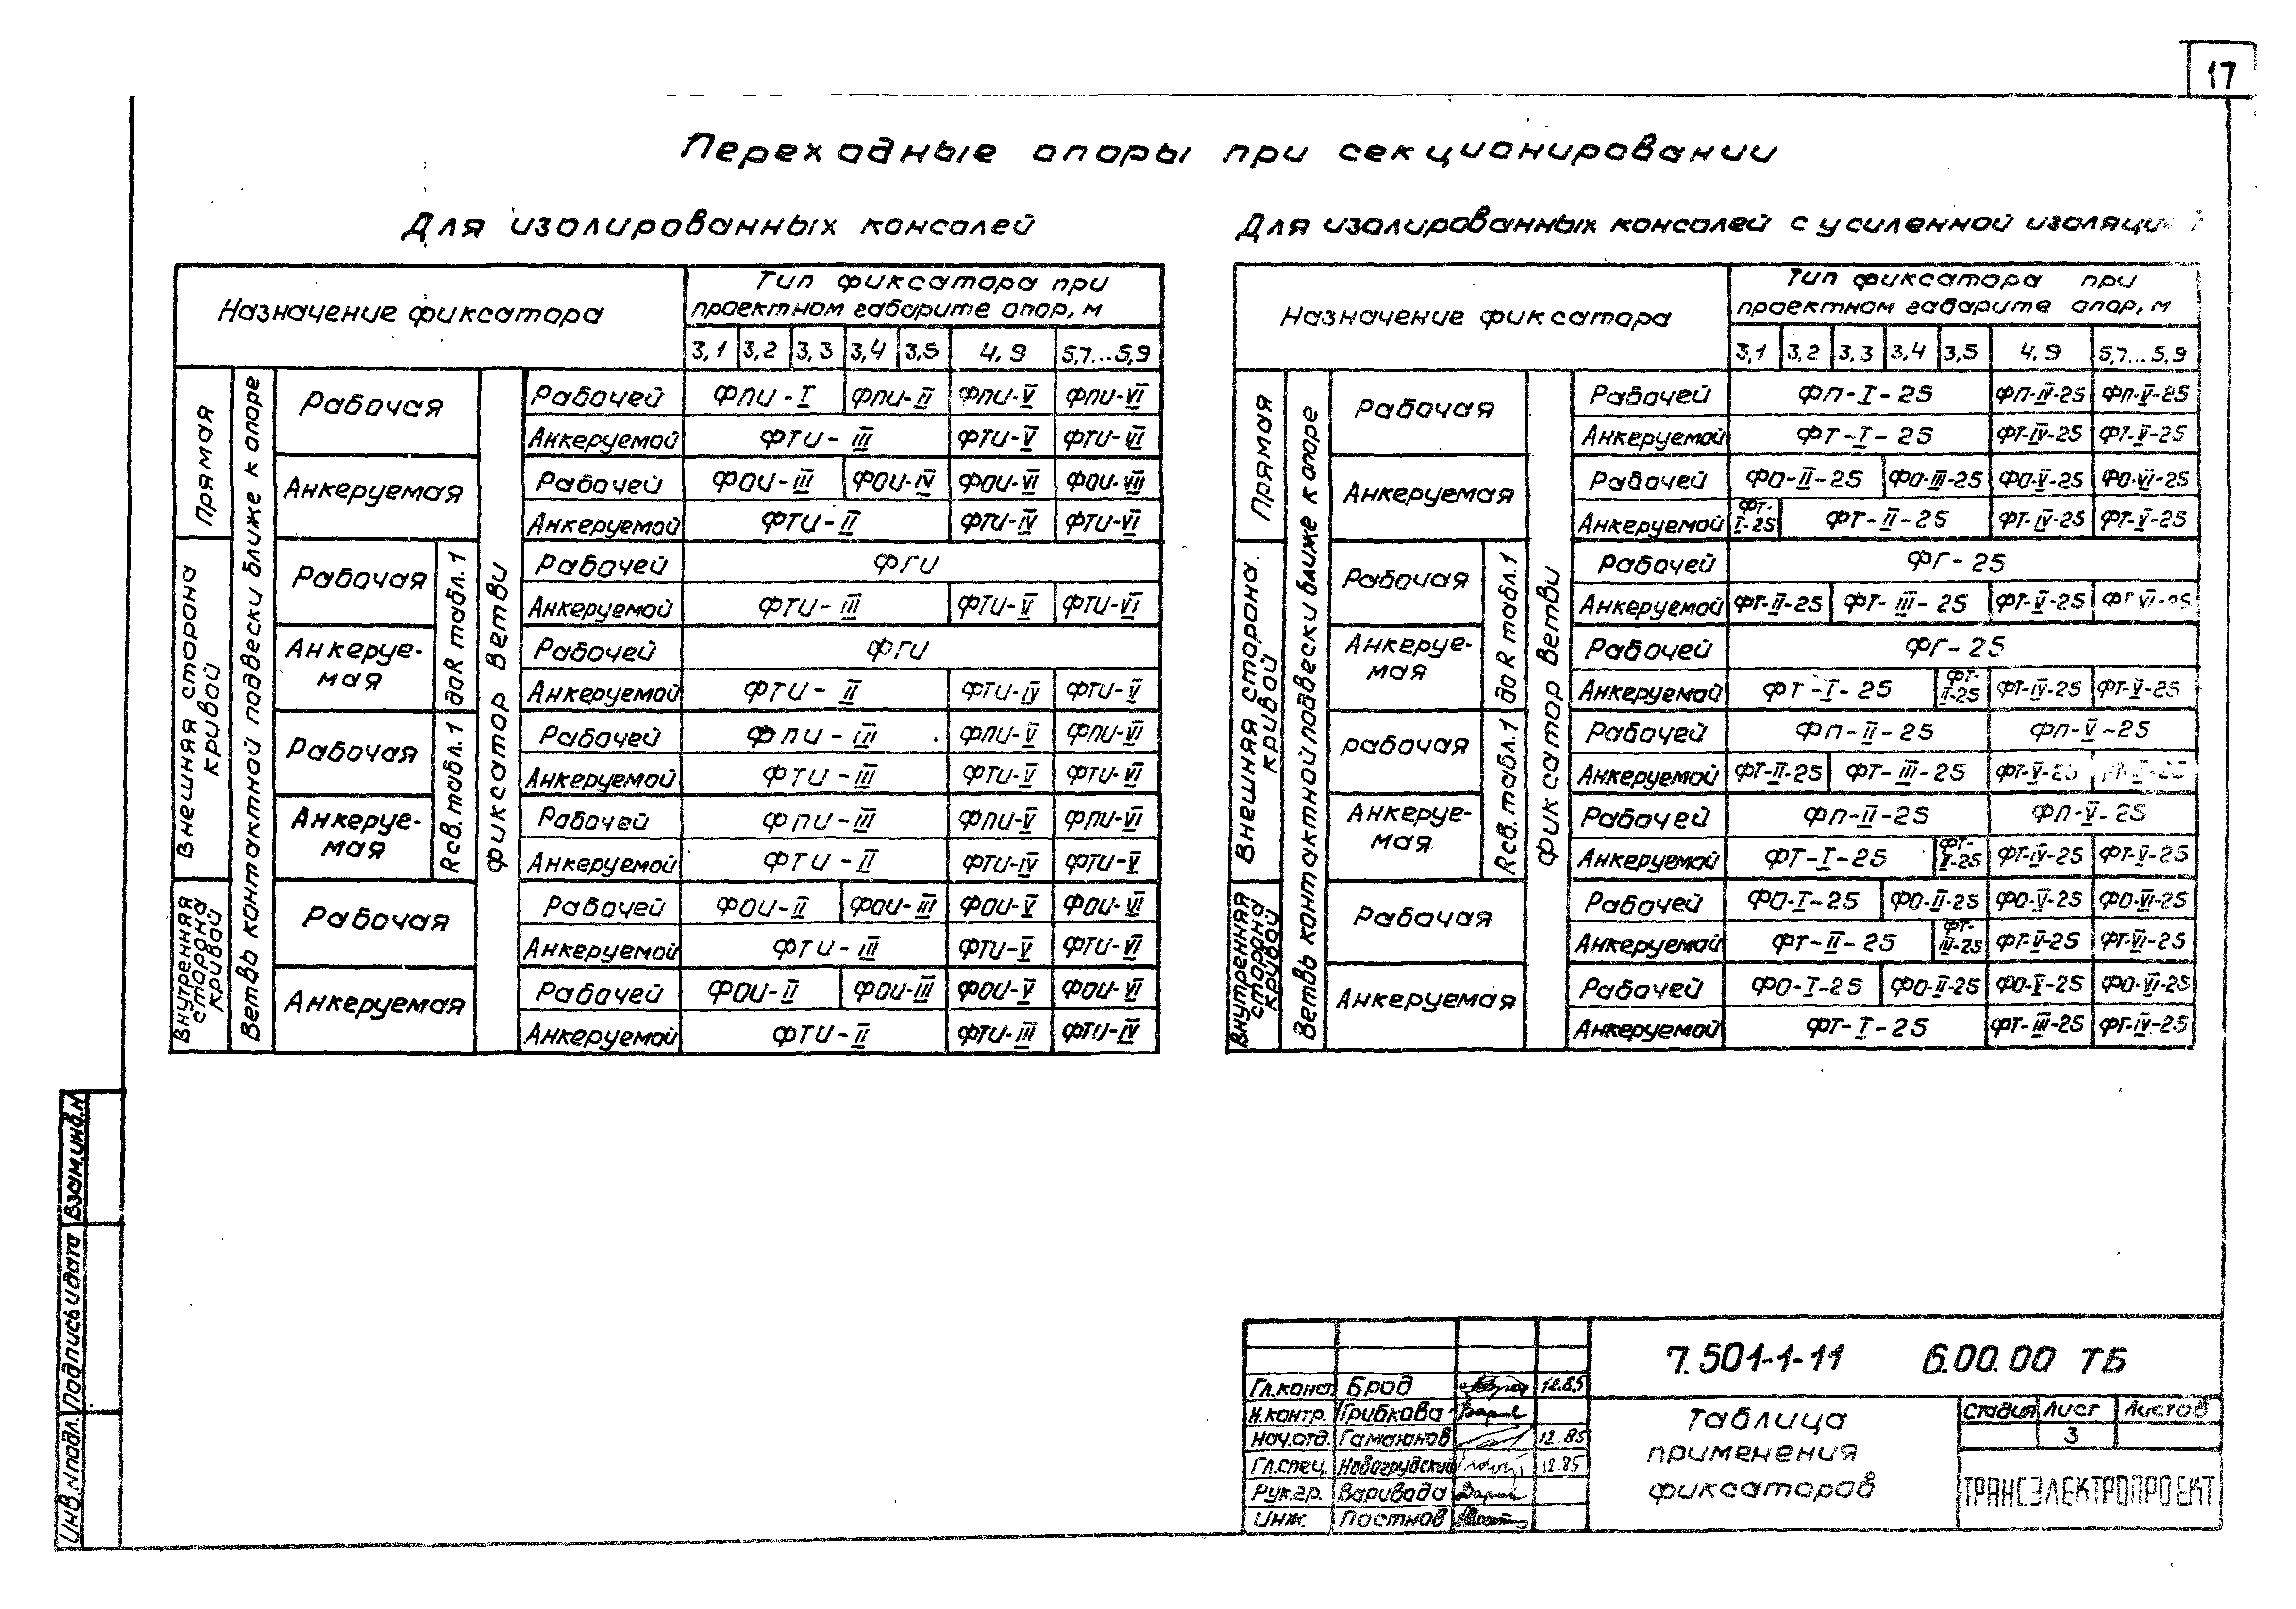 17
Переходные опоры при секционировании
Для изолированных консолей
Назначение фиксатора
Тип фиксатора при
проектном габарите опор, м
3,1 3,2 3,3 3,4 3,5 4,9 5,7...5,9
Прямая
Внешняя сторона
кривой
Внутренняя
сторона
кривой
Ветвь контактной подвески ближе к опоре
Фиксатор ветви
до R табл. 1
R св. табл. 1
Рабочая Рабочей ФПИ-I ФПИ-II ФПИ-V ФПИ-VI
Анкеруемой ФТИ-III ФТИ-V ФТИ-VI
Анкеруемая Рабочей ФОИ-III ФОИ-IV ФОИ-VI ФОИ-VII
Анкеруемой ФТИ-II ФТИ-IV ФТИ-VI
Рабочая Рабочей ФГИ
Анкеруемой ФТИ-III ФТИ-V ФТИ-VI
Анкеруе-
мая
Рабочей ФГИ
Анкеруемой ФТИ-II ФТИ-IV ФТИ-V
Рабочая Рабочей ФПИ-III ФПИ-V ФПИ-VI
Анкеруемой ФТИ-III ФТИ-V ФТИ-VI
Анкеруе-
мая
Рабочей ФПИ-III ФПИ-V ФПИ-VI
Анкеруемой ФТИ-II ФТИ-IV ФТИ-V
Рабочая Рабочей ФОИ-II ФОИ-III ФОИ-V ФОИ-VI
Анкеруемой ФТИ-III ФТИ-V ФТИ-VI
Анкеруемая Рабочей ФОИ-II ФОИ-III ФОИ-V ФОИ-VI
Анкеруемой ФТИ-II ФТИ-III ФТИ-IV
Для изолированных консолей с усиленной
Назначение фиксатора
Тип фиксатора при
проектном габарите опор, м
3,1 3,2 3,3 3,4 3,5 4,9 5,7...5,9
Прямая
Внешняя сторона
кривой
Внутренняя
сторона
кривой
Ветвь контактной подвески ближе к опоре
Фиксатор ветви
до R табл. 1
R св. табл. 1
Рабочая Рабочей ФП-I-25 ФП-IV-25 ФП-V-25
Анкеруемой ФТ-I-25 ФТ-IV-25 ФТ-V-25
Анкеруемая Рабочей ФО-II-25 ФО-III-25 ФО-V-25 ФО-VI-25
Анкеруемой ФТ-I-25 ФТ-II-25 ФТ-IV-25 ФТ-V-25
Рабочая Рабочей ФГ-25
Анкеруемой ФТ-II-25 ФТ-III-25 ФТ-V-25 ФТ-VI-25
Анкеруе-
мая
Рабочей ФГ-25
Анкеруемой ФТ-I-25 ФТ-II-25 ФТ-IV-25 ФТ-V-25
рабочая Рабочей ФП-II-25 ФП-V-25
Анкеруемой ФТ-II-25 ФТ-III-25 ФТ-V-25
Анкеруе-
мая
Рабочей ФП-II-25 ФП-V-25
Анкеруемой ФТ-I-25 ФТ-IV-25 ФТ-V-25
Рабочая Рабочей ФО-I-25 ФО-II-25 ФО-V-25 ФО-VI-25
Анкеруемой ФТ-II-25 ФТ-III-25 ФТ-V-25 ФТ-VI-25
Анкеруемая Рабочей ФО-I-25 ФО-II-25 ФО-V-25 ФО-VI-25
Анкеруемой ФТ-I-25 ФТ-III-25 ФТ-IV-25
Взам.инв.N
Подпись и дата
Инв.N подл.
7.501-1-11 6.00.00 ТБ
Гл.конст. Брод 12.85
Н.контр. Грибкова
Нач.отд. Гамаюнов 12.85
Гл.спец. Новогрудский 12.85
Рук.гр. Варивода
Инж. Постнов
Таблица
применения
фиксаторов
Стадия Лист Листов
3
ТРАНСЭЛЕКТРОПРОЕКТ